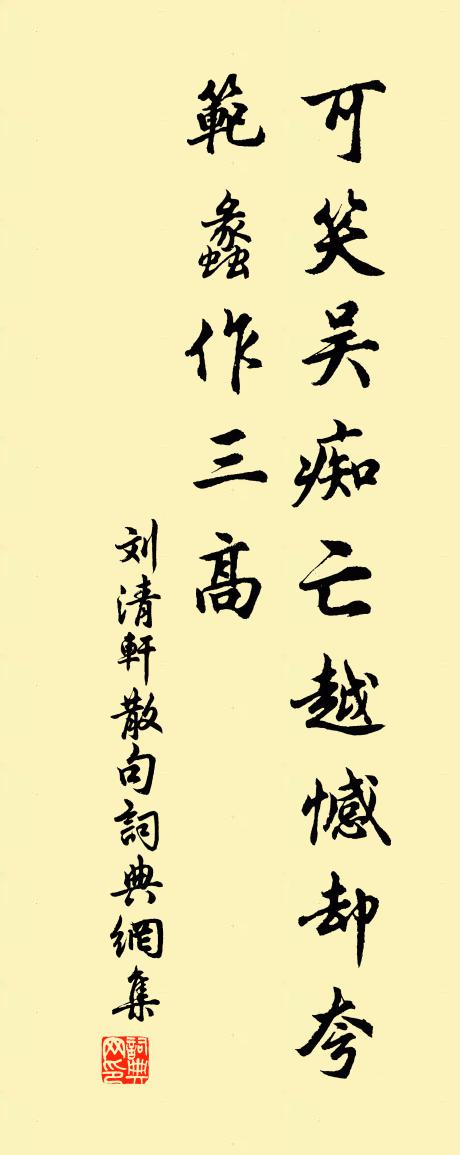 可笑吴痴亡越憾却夸
範蠡作三高
刘清軒散句詞典網集
詞典网印